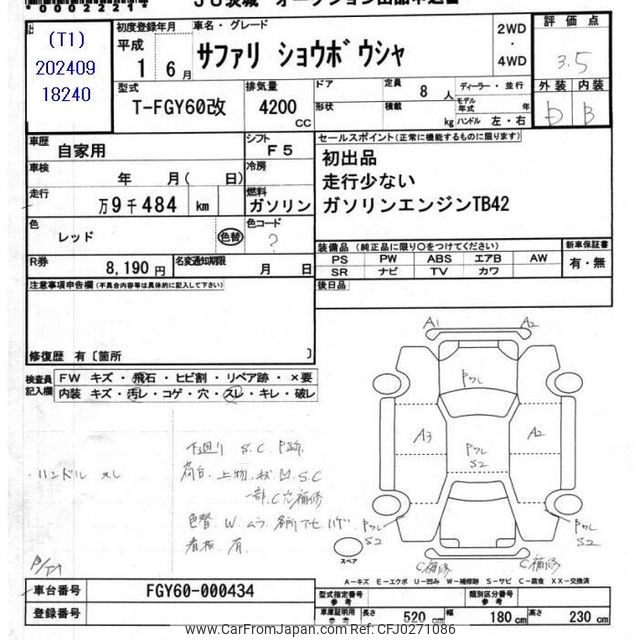 *0002214*
(T1)
202409
18240
初度登録年月
平成
1 6月
車名・グレード
サファリ ショウボウシャ
2WD
・
4WD
評価点
3.5
外装 内装
D B
型式
T-FGY60改
排気量
4200
CC
ドア
形状
定員
8 人
積載
kg
ディーラー・並行
モデル年式 年
ハンドル 左・右
車歴
自家用
シフト
F5
車検
年 月( 日)
冷房
走行
万9千484 km
燃料
ガソリン
色
レッド
色替
色コード
?
R券
8,190円
名変通知期限
月 日
セールスポイント(正常に機能するものに限ります)
初出品
走行少ない
ガソリンエンジンTB42
装備品(純正品に限り○をつけてください)
PS PW ABS エアB AW
SR ナビ TV カワ
新車保証書
有・無
後日品
注意事項申告欄(不具合内容等は具体的に記入して下さい)
修復歴 有〔箇所 〕
検査員記入欄
FW キズ・飛石・ヒビ割・リペア跡・×要
内装 キズ・汚レ・コゲ・穴・スレ・キレ・破レ
ハンドル スレ
下廻り S.C.
荷台.上物.
S.C
一部.C穴補修
色替 W ムラ
看板 有
A1 A2
Pクレ
A3
Pクレ
S2
A2
Pクレ
S2
Pクレ
S2
C補修
C補修
スペア
A-キズ E-エクボ U-凹み W-補修跡 S-サビ C-腐食 XX-交換済
車台番号
FGY60-000434
登録番号
型式指定番号
参考
類別区分番号
参考
車庫証明用
参考
長さ
520 cm
幅
180 cm
高さ
230 cm
www.CarFromJapan.com | Ref No: CFJ0271086